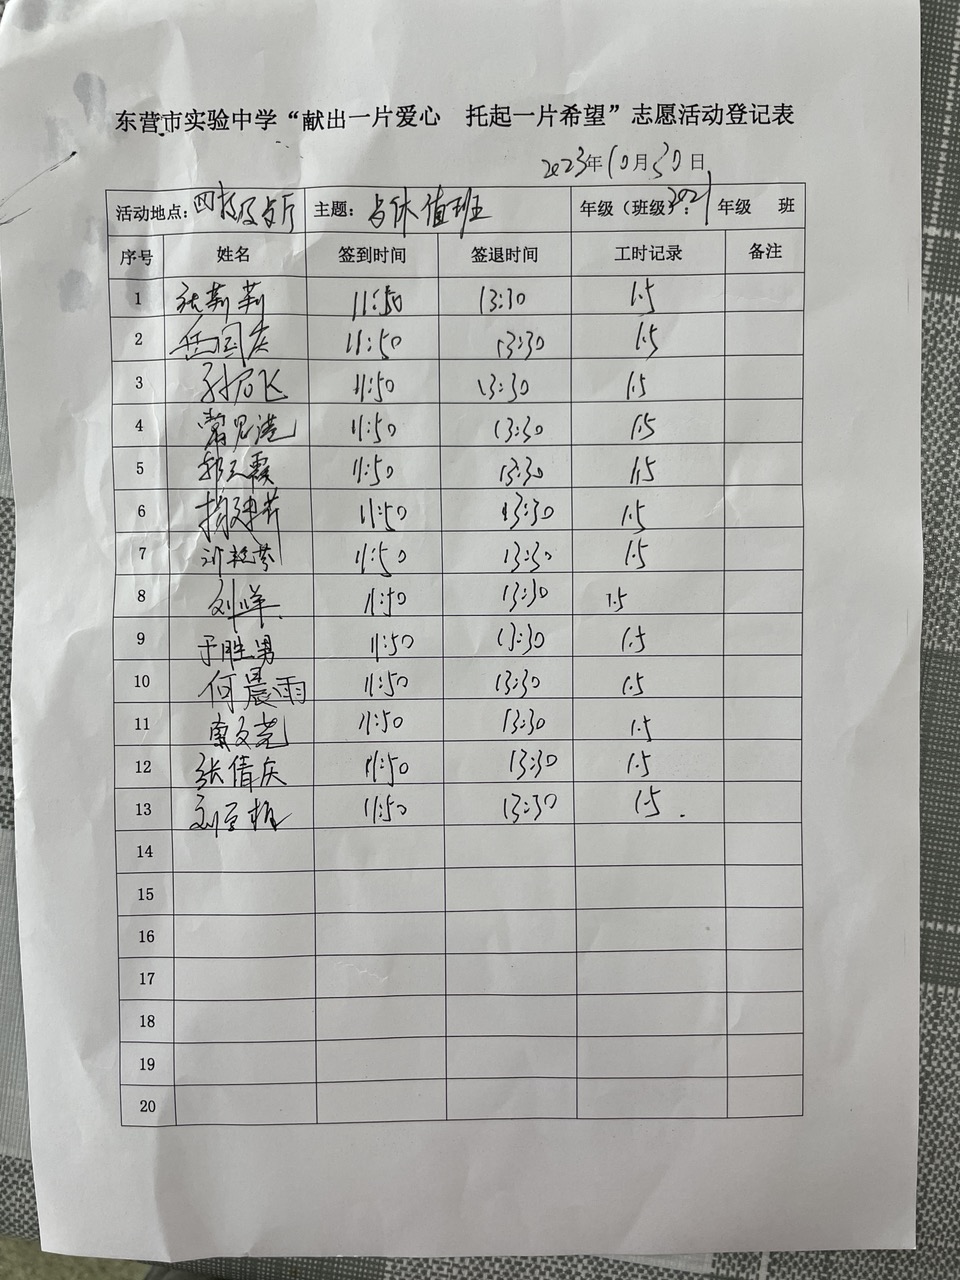 东营市实验中学“献出一片爱心 托起一片希望”志愿活动登记表
2023年10月30日
活动地点： 主题：午休值班 年级（班级）：2021年级 班
序号 姓名 签到时间 签退时间 工时记录 备注
1 张莉莉 11:50 13:30 1.5
2 岳国庆 11:50 13:30 1.5
3 11:50 13:30 1.5
4 11:50 13:30 1.5
5 霞 11:50 13:30 1.5
6 11:50 13:30 1.5
7 11:50 13:30 1.5
8 刘洋 11:50 13:30 1.5
9 于胜男 11:50 13:30 1.5
10 何晨雨 11:50 13:30 1.5
11 11:50 13:30 1.5
12 张倩庆 11:50 13:30 1.5
13 刘 11:50 13:30 1.5
14
15
16
17
18
19
20